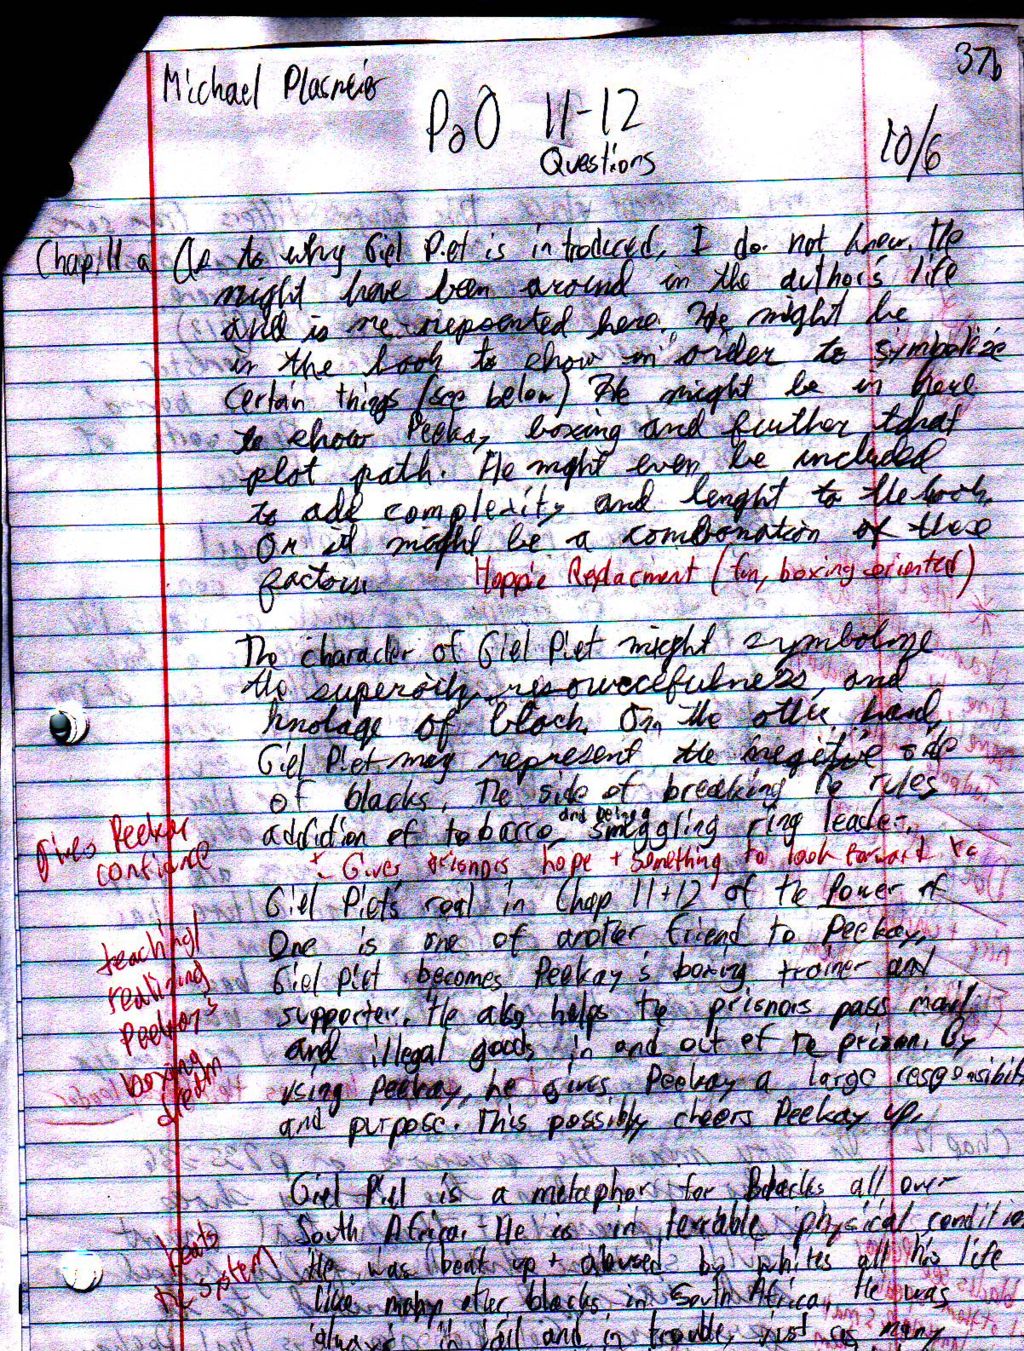 37b
Michael Plasmeier
PoO 11-12
Questions
10/6
Chap 11 a As to why Giel Piet is introduced, I do not know. He
might have been around in the author's life
and is represented here. He might be
in the book to show in order to symbolize
certain things (see below) He might be in here
to show Peekay boxing and further that
plot path. He might even be included
to add complexity and lenght to the book.
Or it might be a combonation of these
factors.
Hoppie Replacment (fun, boxing oriented)
The character of Giel Piet might symbolize
the superority, resourcefulness, and
knolage of black. On the other hand,
Giel Piet may represent the negitive side
of blacks, The side of breaking the rules
addiction of tobacco and being smuggling ring leader.
Gives Peekay
confidence
+ Gives prisnors hope + something to look forward to
Giel Piet's roal in Chap 11+12 of the Power of
One is one of another friend to Peekay.
Giel Piet becomes Peekay's boxing trainer and
supporter. He also helps the prisnors pass mail
and illegal goods in and out of the prizon. By
using Peekay, he gives Peekay a large responsibility
and purpose. This possibly cheers Peekay up.
teaching/
realizing
Peekay's
boxing
dream
Giel Piet is a metaphor for Blacks all over
South Africa. He is in terrable physical condition
He was beat up + abused by whites all his life
like many other blacks in South Africa, He was
always in jail and in trouble, just as many
beats
the system